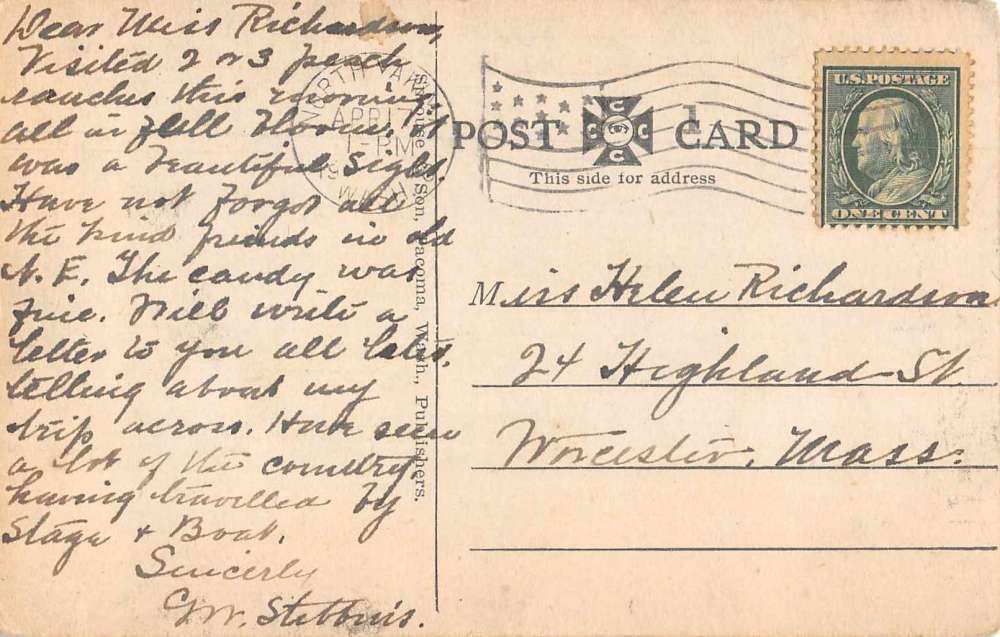 Dear Miss Richardson,
Visited 2 or 3 peach
ranches this morning,
all in full bloom. It
was a beautiful sight.
Have not forgot all
the kind friends in old
N. E. The candy was
fine. Will write a
letter to you all later,
telling about my
trip across. Have seen
a lot of the country,
having travelled by
Stage & Boat.
Sincerly
G.W. Stebbins.
NORTH YAKIMA
APR 17
1-PM
WASH
Son, Tacoma, Wash., Publishers.
POST CARD
This side for address
U.S. POSTAGE
ONE CENT
Miss Helen Richardson
24 Highland St
Worcester, Mass.